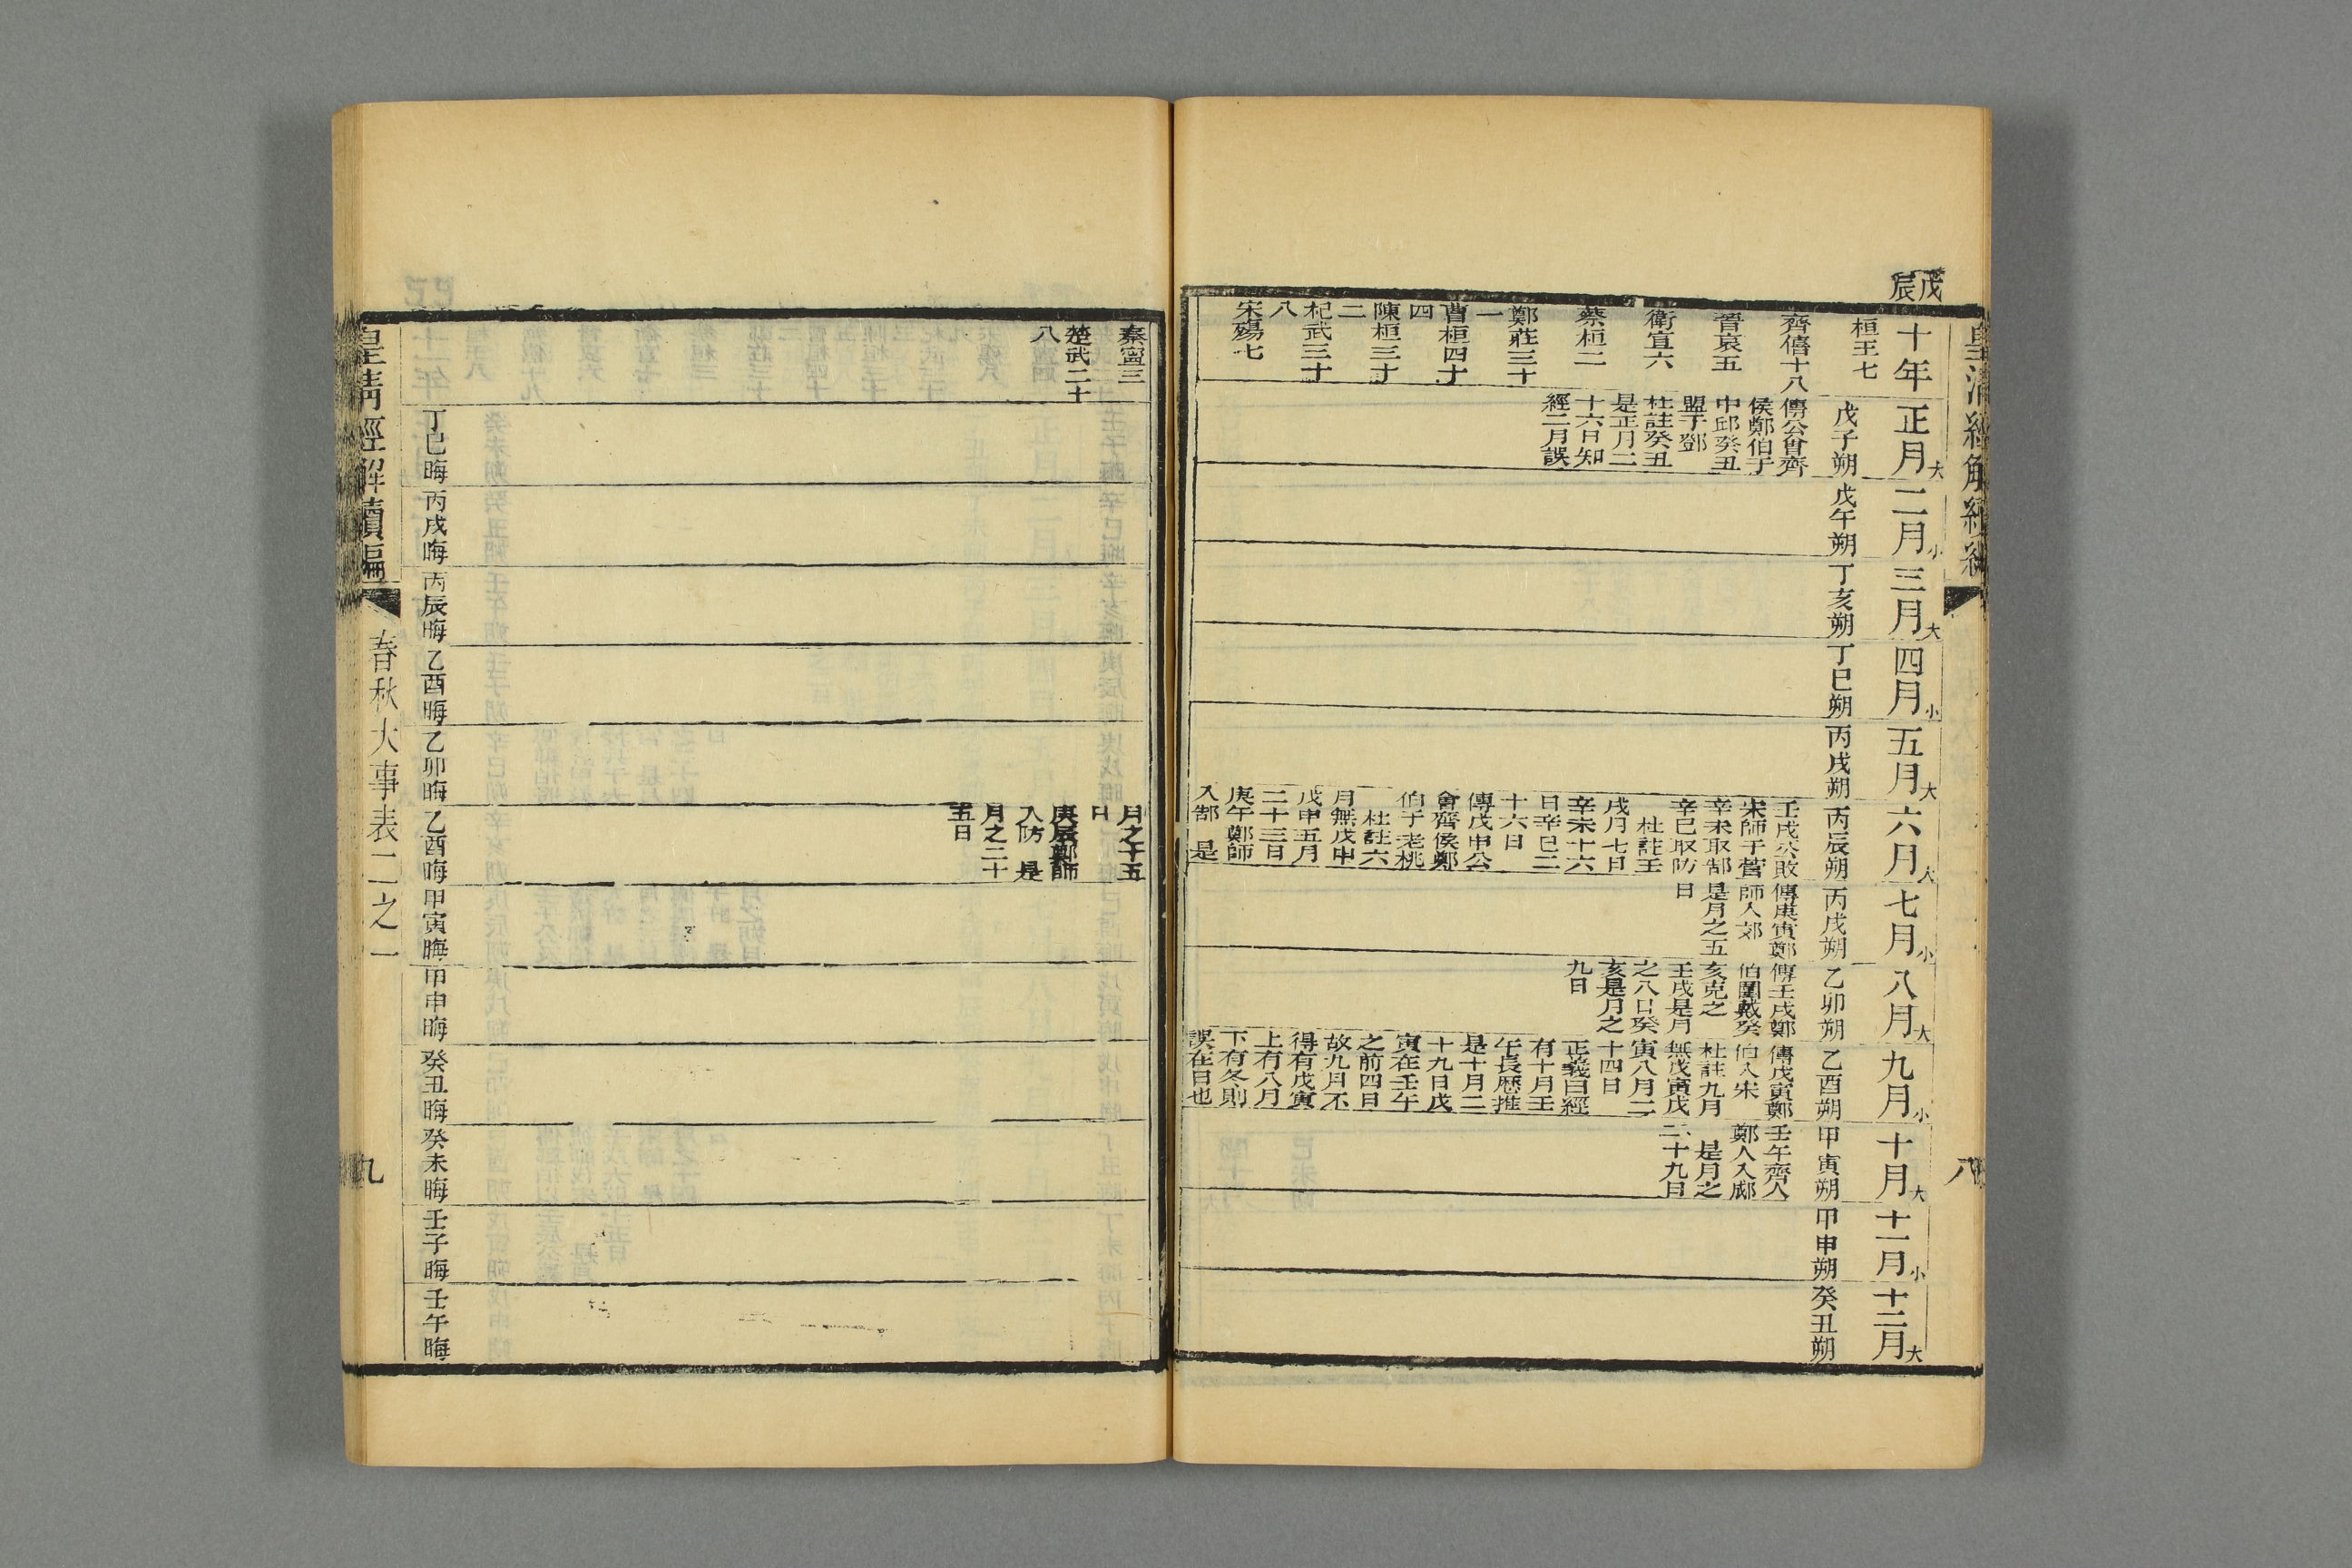 皇清經解續編
八
戊辰
十年
桓王七
齊僖十八
晉哀五
衛宣六
蔡桓二
鄭莊三十
一
曹桓四十
四
陳桓三十
二
杞武三十
八
宋殤七
正月大
戊子朔
傳公會齊
侯鄭伯于
中邱癸丑
盟于鄧
杜註癸丑
是正月二
十六日知
經二月誤
二月小
戊午朔
三月大
丁亥朔
四月小
丁巳朔
五月大
丙戌朔
六月大
丙辰朔
壬戌公敗
宋師于菅
辛未取郜
辛巳取防
杜註壬
戌月七日
辛未十六
日辛巳二
十六日
傳戊申公
會齊侯鄭
伯于老桃
杜註六
月無戊申
戊申五月
二十三日
庚午鄭師
入郜 是
七月小
丙戌朔
傳庚寅鄭
師入郊
是月之五
日
八月大
乙卯朔
傳壬戌鄭
伯圍戴癸
亥克之
壬戌是月
之八日癸
亥是月之
九日
九月小
乙酉朔
傳戊寅鄭
伯入宋
杜註九月
無戊寅戊
寅八月二
十四日
正義曰經
有十月壬
午長歷推
是十月二
十九日戊
寅在壬午
之前四日
故九月不
得有戊寅
上有八月
下有冬則
誤在日也
十月大
甲寅朔
壬午齊人
鄭人入郕
是月之
二十九日
十一月小
甲申朔
十二月大
癸丑朔
秦寧三
楚武二十
八
丁巳晦
丙戌晦
丙辰晦
乙酉晦
乙卯晦
月之十五
日
庚辰鄭師
入防 是
月之二十
五日
乙酉晦
甲寅晦
甲申晦
癸丑晦
癸未晦
壬子晦
壬午晦
皇清經解續編
春秋大事表二之一
九